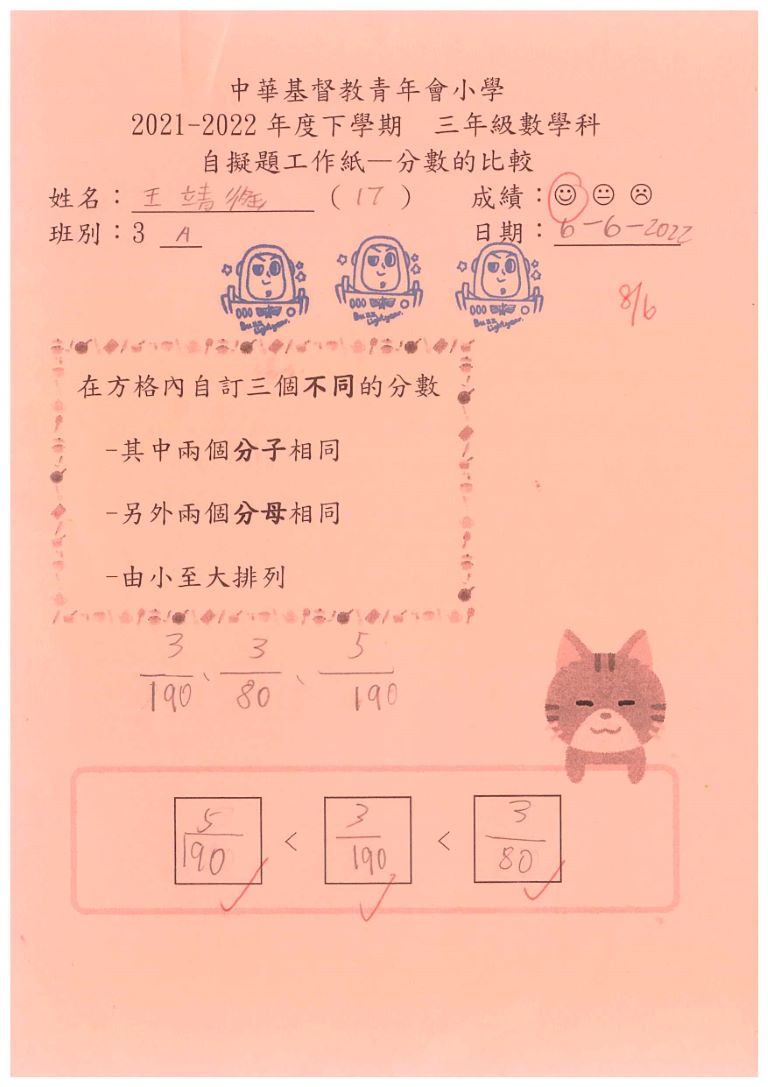 中華基督教青年會小學
2021-2022 年度下學期 三年級數學科
自擬題工作紙—分數的比較
姓名：王靖 (17) 成績：
班別：3 A 日期：6-6-2022
Buzz Lightyear. Buzz Lightyear. Buzz Lightyear.
8/6
在方格內自訂三個不同的分數
-其中兩個分子相同
-另外兩個分母相同
-由小至大排列
3/190、3/80、5/190
5/190 < 3/190 < 3/80